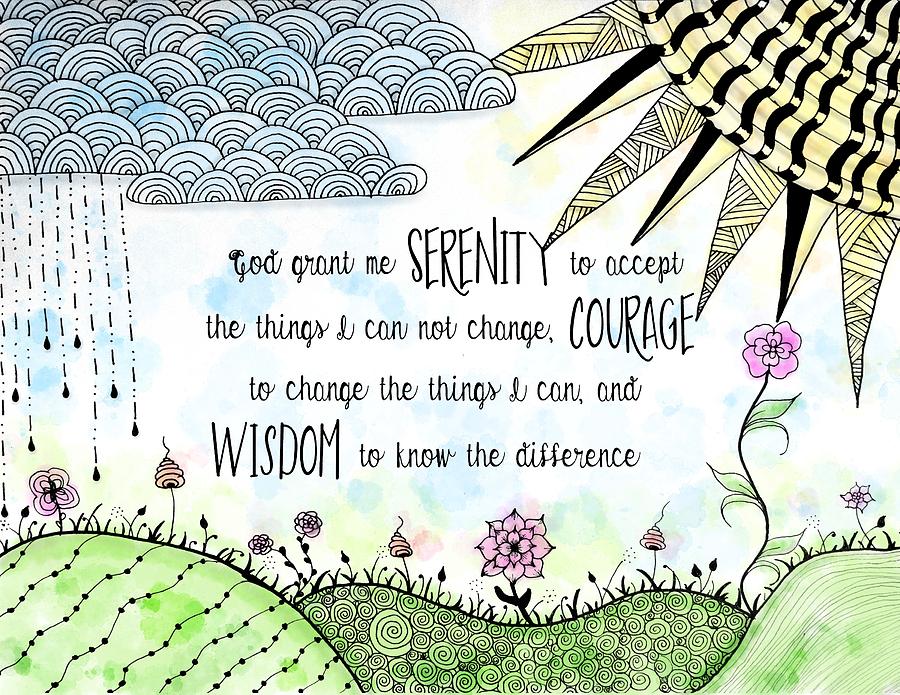 God grant me SERENITY to accept
the things I can not change, COURAGE
to change the things I can, and
WISDOM to know the difference